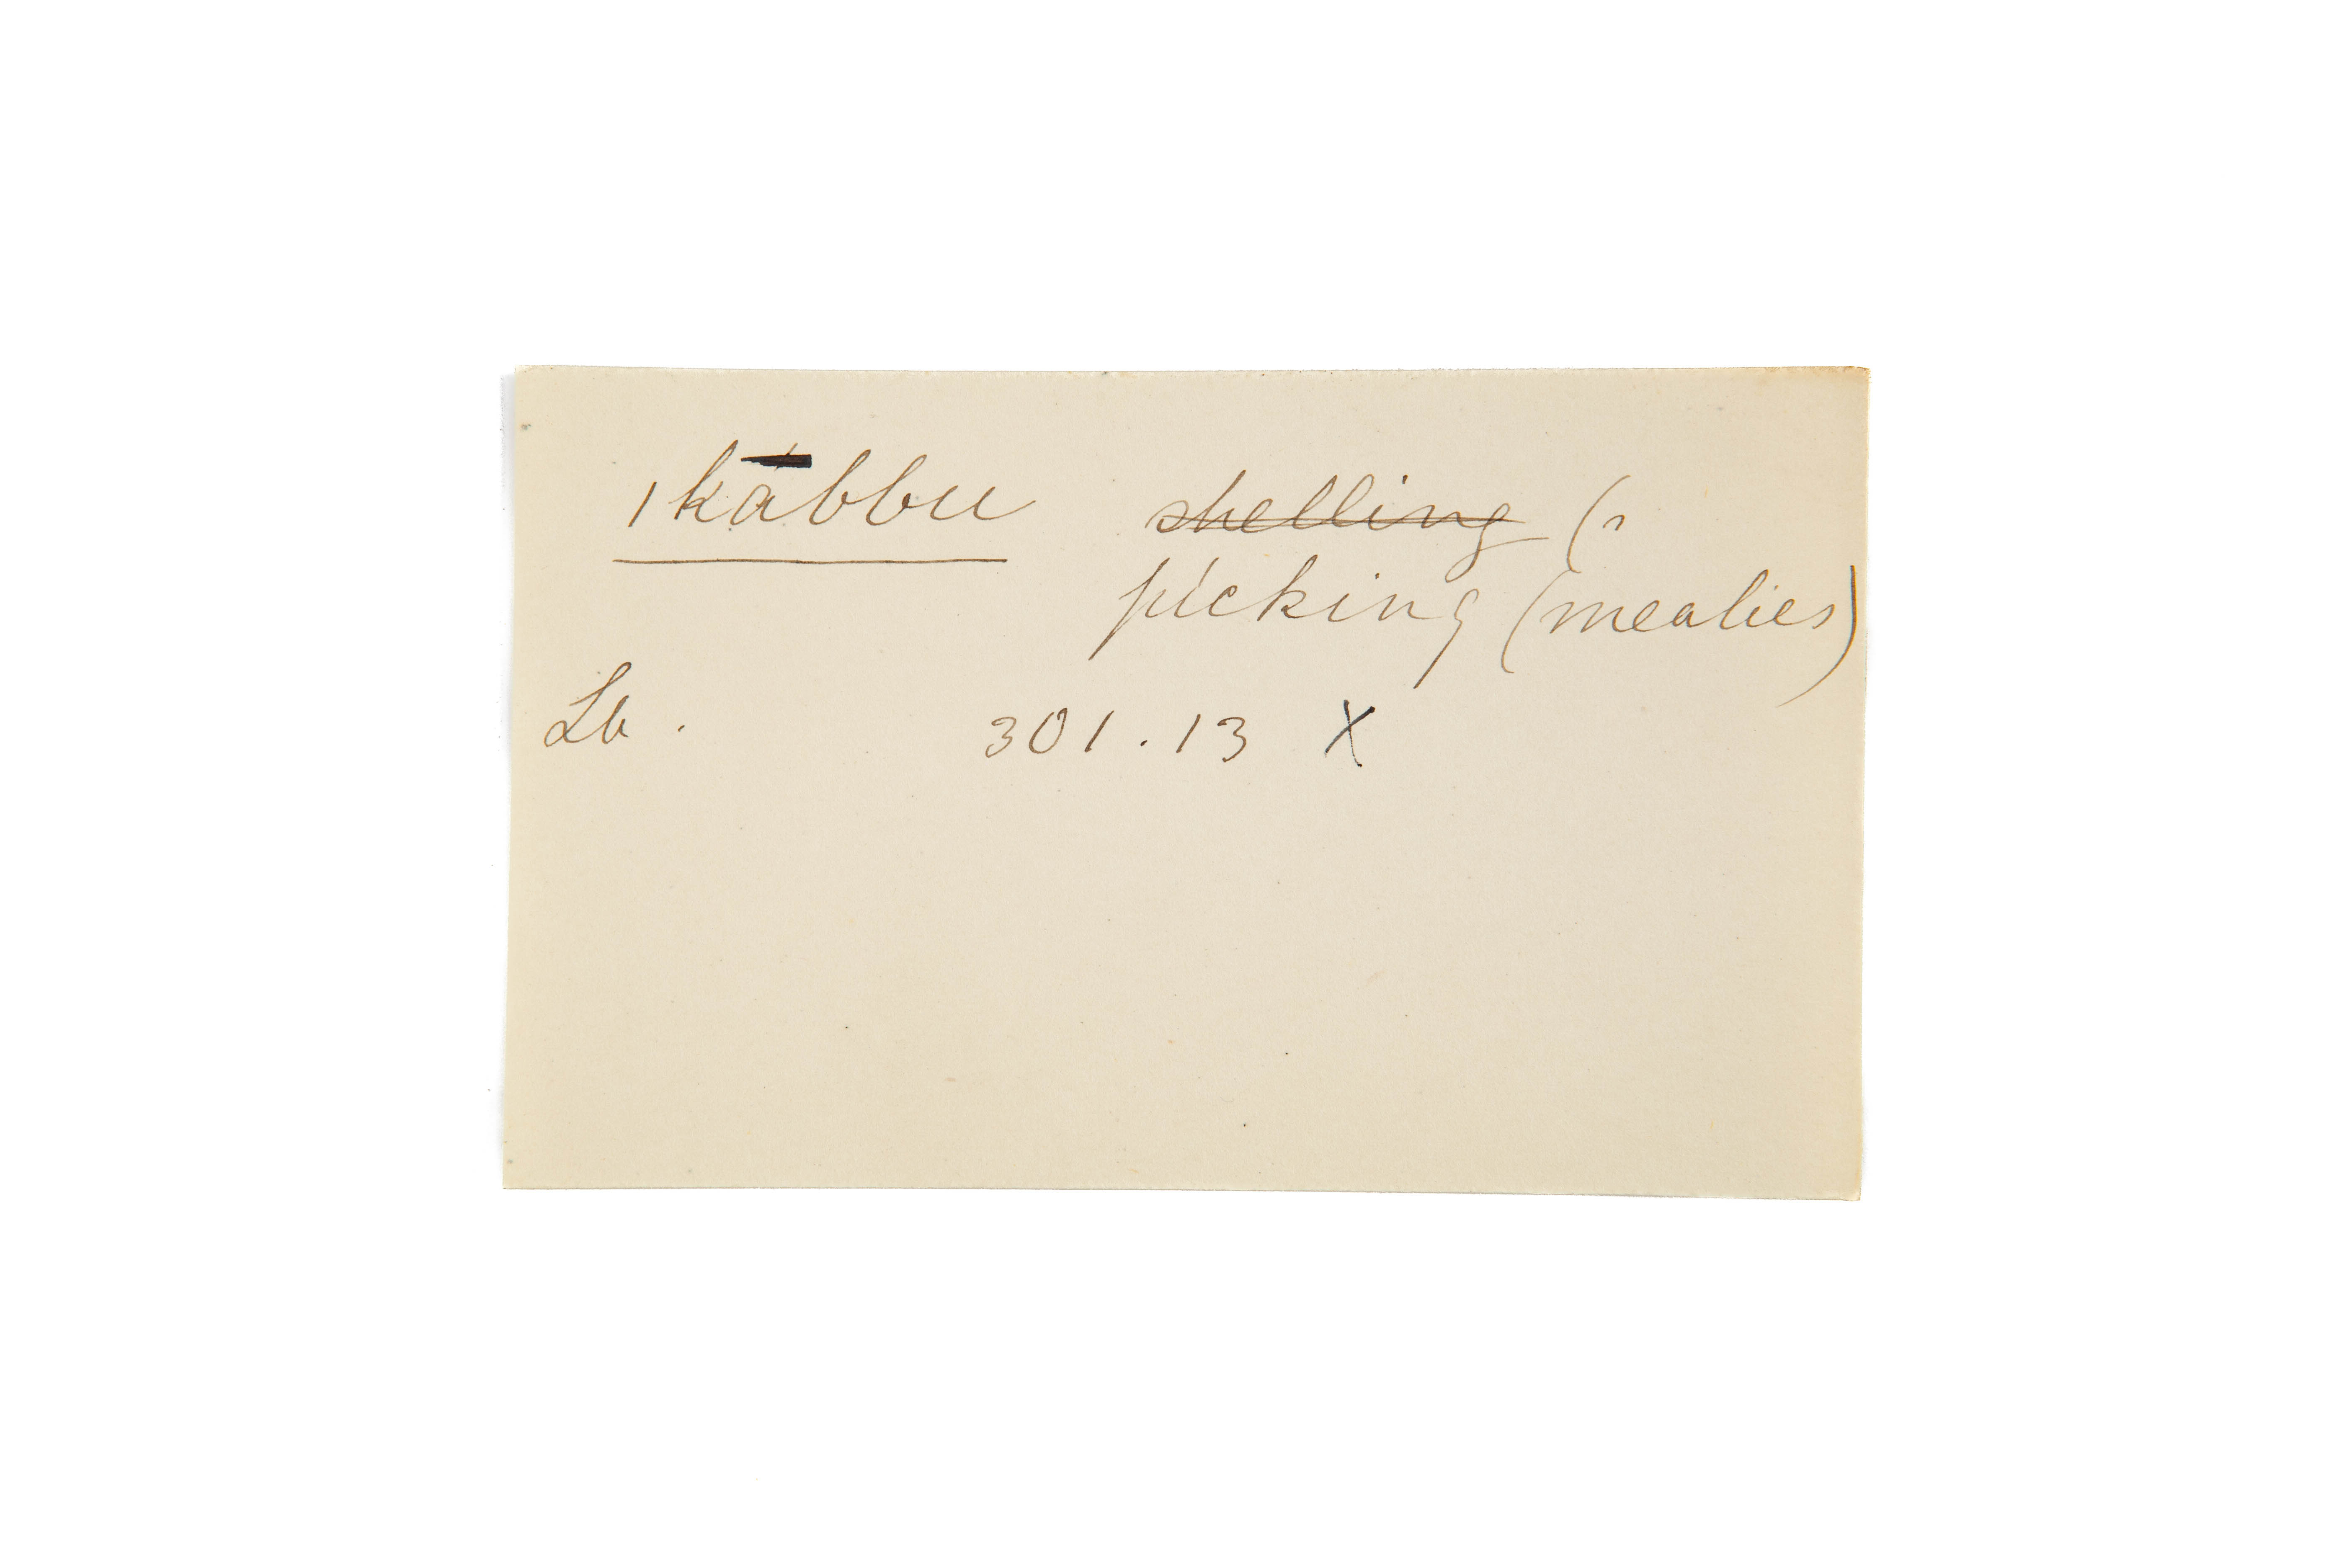 ǀkabbu ~~shelling~~ (
picking (mealies)
Lb. 301.13 X